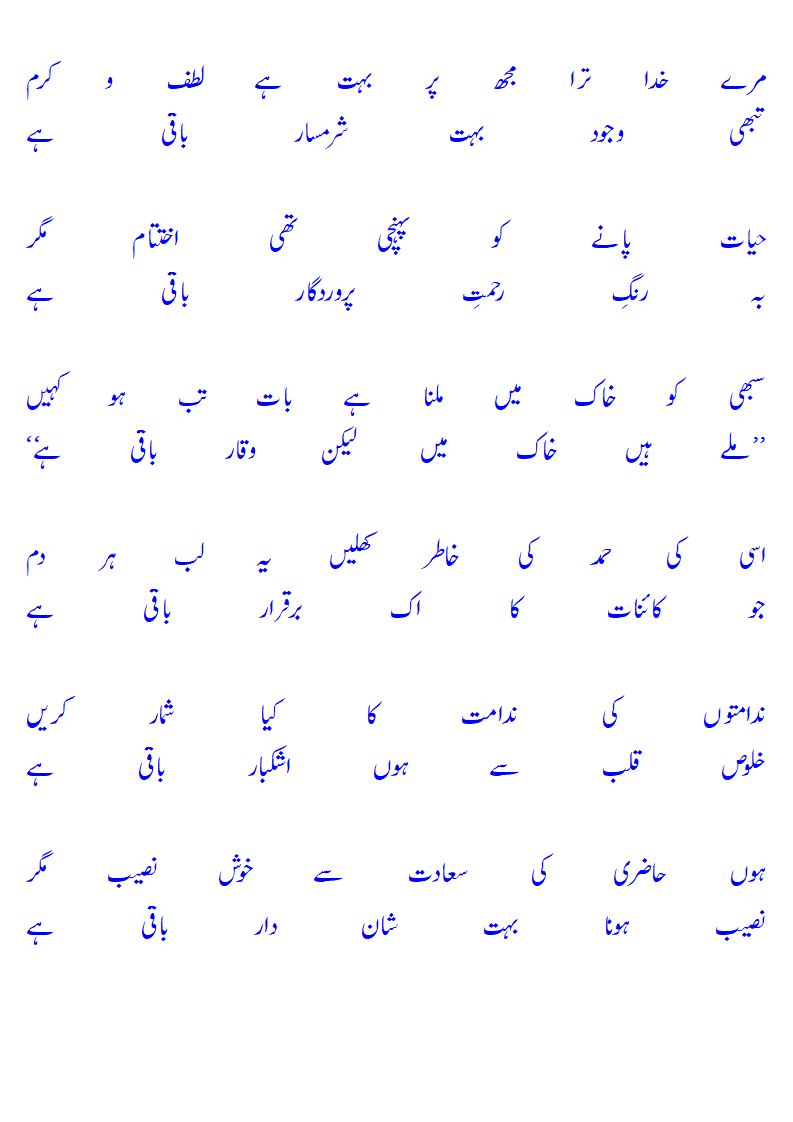 مرے خدا ترا مجھ پر بہت ہے لطف و کرم
تبھی وجود بہت شرمسار باقی ہے
حیات پانے کو پہنچی تھی اختتام مگر
بہ رنگِ رحمتِ پروردگار باقی ہے
سبھی کو خاک میں ملنا ہے بات تب ہو کہیں
’’ملے ہیں خاک میں لیکن وقار باقی ہے‘‘
اسی کی حمد کی خاطر کھلیں یہ لب ہر دم
جو کائنات کا اک برقرار باقی ہے
ندامتوں کی ندامت کا کیا شمار کریں
خلوص قلب سے ہوں اشکبار باقی ہے
ہوں حاضری کی سعادت سے خوش نصیب مگر
نصیب ہونا بہت شان دار باقی ہے